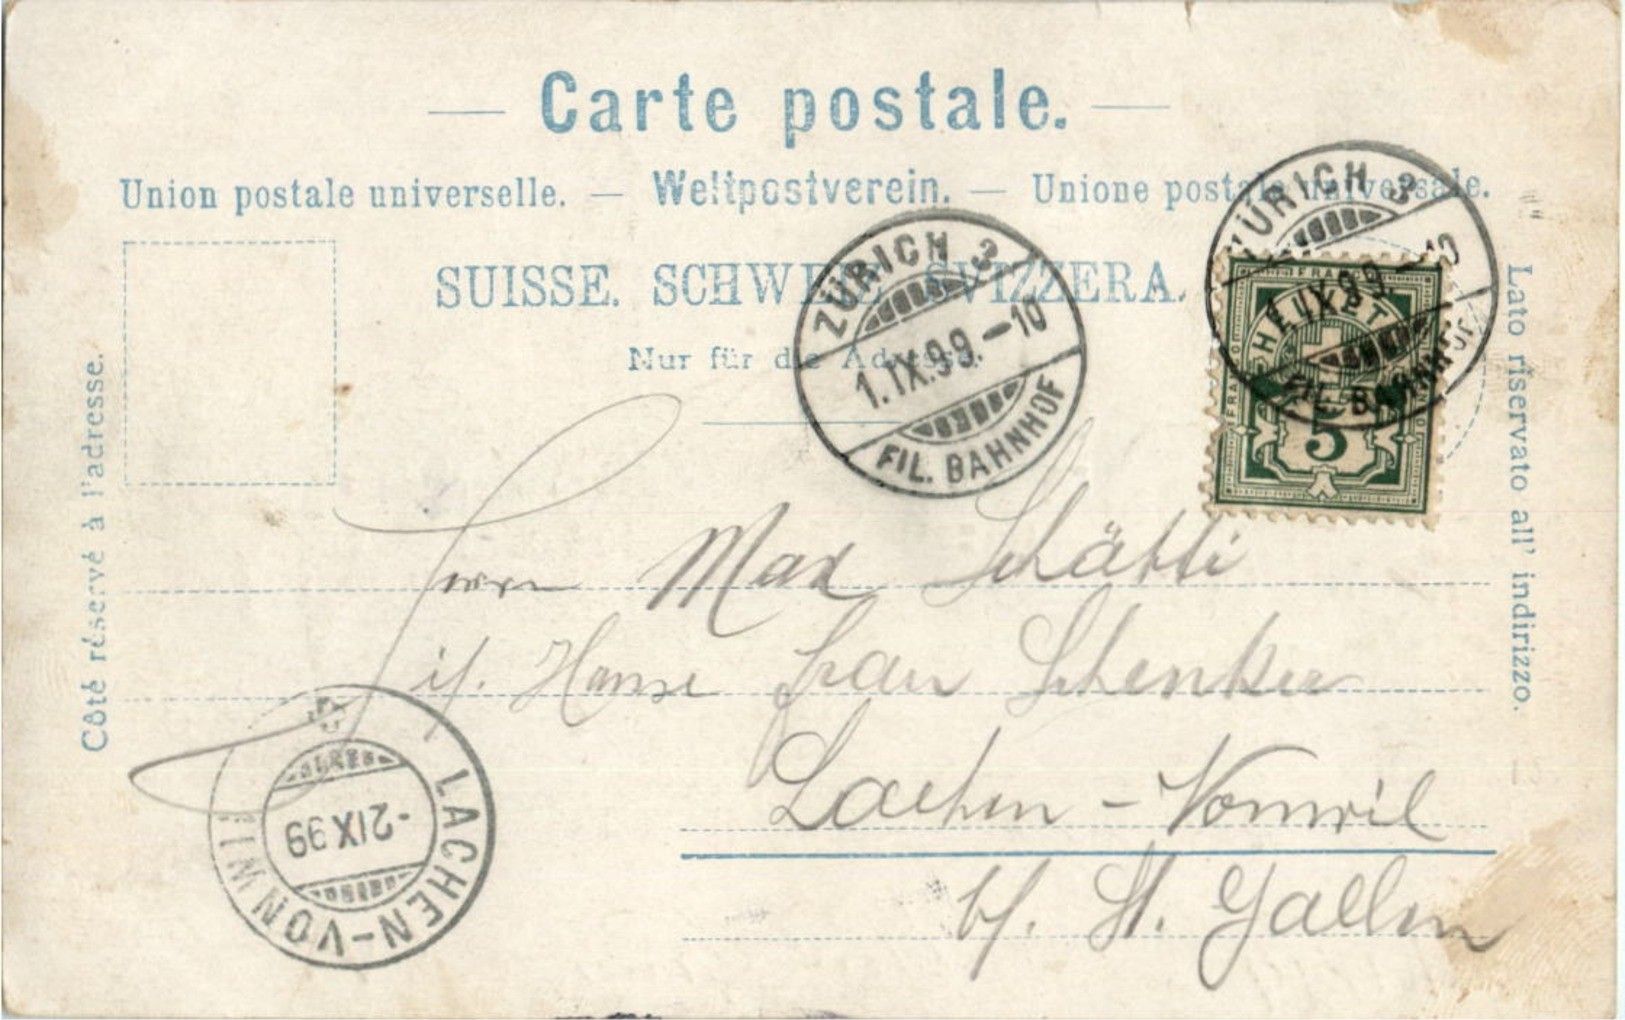 Carte postale.
Union postale universelle. — Weltpostverein. — Unione postale universale.
SUISSE. SCHWEIZ. SVIZZERA.
Nur für die Adresse.
Côté réservé à l'adresse.
Lato riservato all' indirizzo.
ZÜRICH 3
1.IX.99–10
FIL. BAHNHOF
ZÜRICH 3
1.IX.99–10
FIL. BAHNHOF
FRANCO
HELVETIA
5
Herrn Max Schätti
i/. Hause Frau Schenker
Lachen-Vonwil
b/. St. Gallen
LACHEN-VONWIL
-2IX99